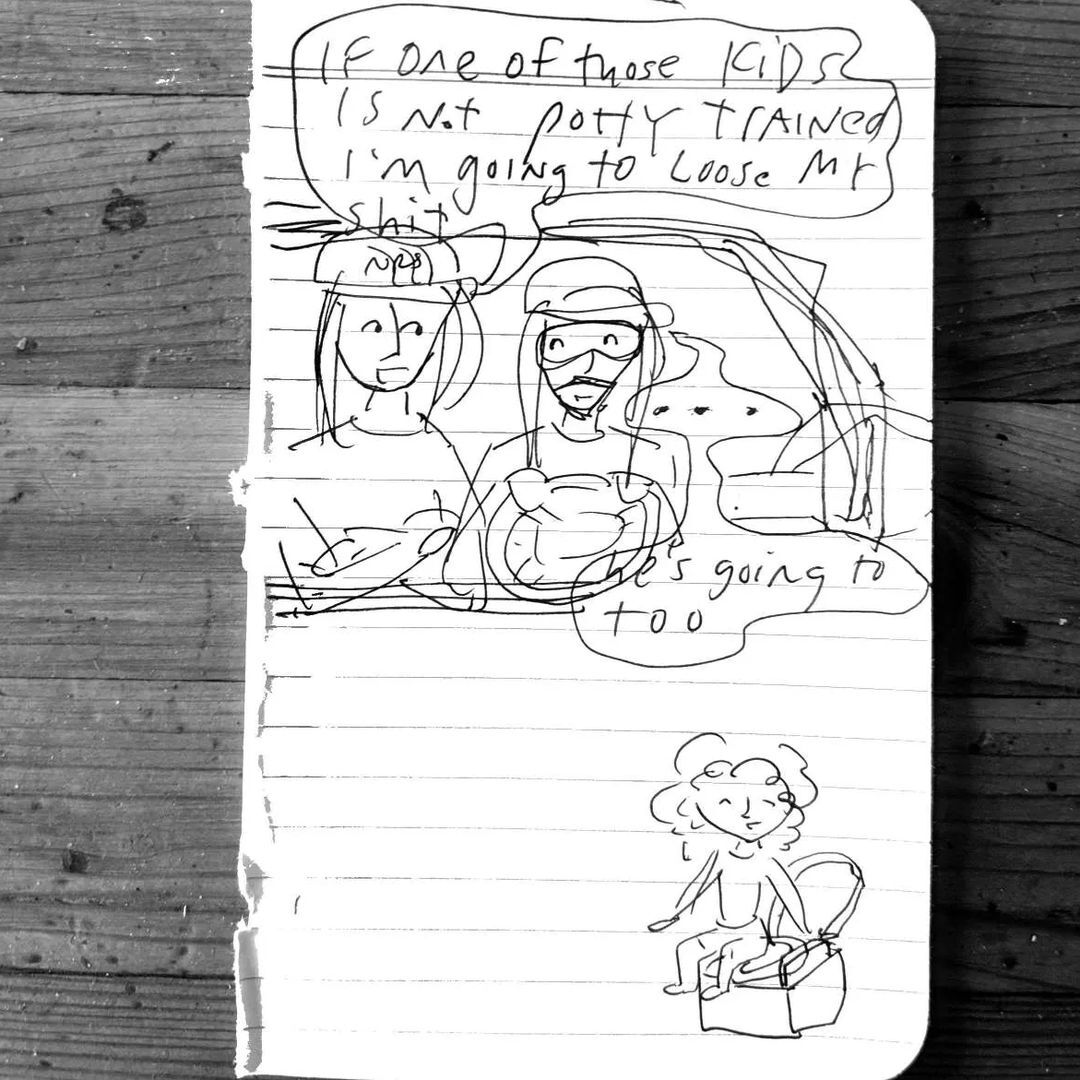 IF one of those KiDs
Is Not potty TRAINed
I'm going to Loose My
shit
NPS
...
he's going to
too